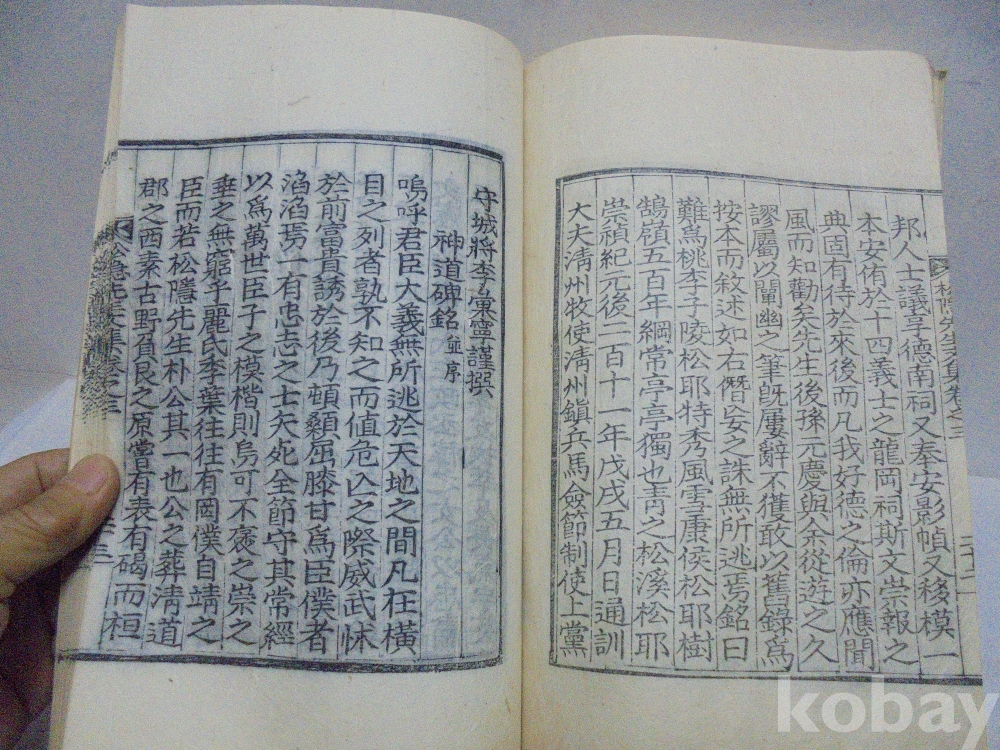 邦人士議享德南祠又奉安影幀又移模一
本安侑於十四義士之龍岡祠斯文崇報之
典固有待於來後而凡我好德之倫亦應聞
風而知勸矣先生後孫元慶與余從遊之久
謬屬以闡幽之筆旣屢辭不獲敢以舊錄爲
按本而敘述如右僭妄之誅無所逃焉銘曰
難爲桃李子陵松耶特秀風雪康侯松耶樹
鵠嶺五百年綱常亭亭獨也靑之松溪松耶
崇禎紀元後二百十一年戊戌五月日通訓
大夫淸州牧使淸州鎭兵馬僉節制使上黨
松隱先生文集卷之三
守城將李彙寗謹撰
神道碑銘並序
嗚呼君臣大義無所逃於天地之間凡在橫
目之列者孰不知之而値危亾之際威武怵
於前富貴誘於後乃頓顙屈膝甘爲臣僕者
滔滔焉一有忠志之士矢死全節守其常經
以爲萬世臣子之模楷則烏可不褒之崇之
垂之無窮乎麗氏季葉往往有罔僕自靖之
臣而若松隱先生朴公其一也公之葬淸道
郡之西素古野負艮之原嘗有表有碣而桓
kobay